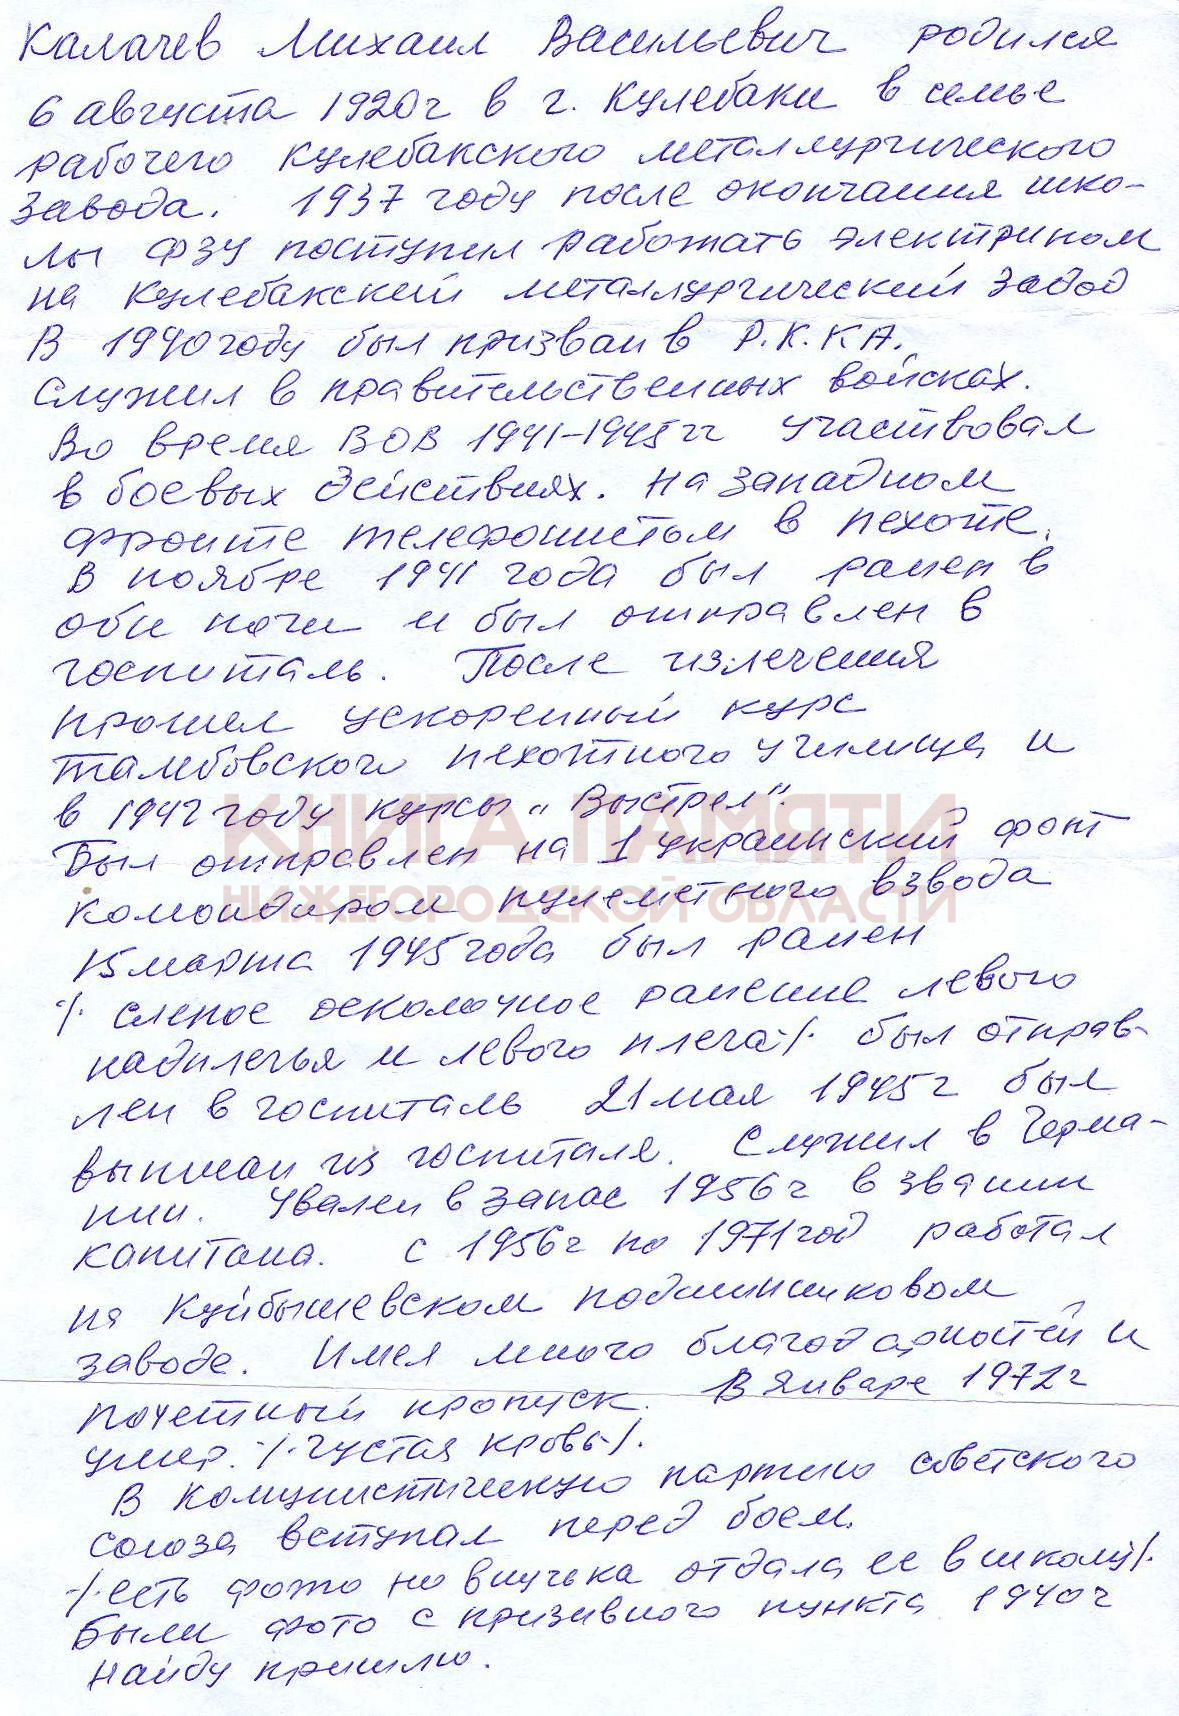 Калачев Михаил Васильевич родился
6 августа 1920г в г. Кулебаки в семье
рабочего Кулебакского металлургического
завода. 1937 году после окончания шко-
лы ФЗУ поступил работать электриком
на Кулебакский металлургический завод
В 1940 году был призван в Р.К.К.А.
Служил в правительственных войсках.
Во время ВОВ 1941-1945гг участвовал
в боевых действиях. На западном
фронте телефонистом в пехоте.
В ноябре 1941 года был ранен в
обе ноги и был отправлен в
госпиталь. После излечения
прошел ускоренный курс
Тамбовского пехотного училища и
в 1942 году курсы „Выстрел".
КНИГА ПАМЯТИ
Был отправлен на 1 украинский фонт
НИЖЕГОРОДСКОЙ ОБЛАСТИ
командиром пулеметного взвода
15 марта 1945 года был ранен
·/· слепое осколочное ранение левого
надплечья и левого плеча ·/· был отправ-
лен в госпиталь 21 мая 1945г был
выписан из госпиталя. Служил в Герма-
нии. Увален в запас 1956г в звании
капитана. С 1956г по 1971год работал
на Куйбышевском подшипниковом
заводе. Имел много благодарностей и
почетный пропуск. В январе 1972г
умер. ·/· густая кровь ·/·
В Комунистическую партию советского
союза вступал перед боем.
·/· есть фото но внучька отдала ее в школу ·/·
Были фото с призивного пункта 1940г
найду пришлю.